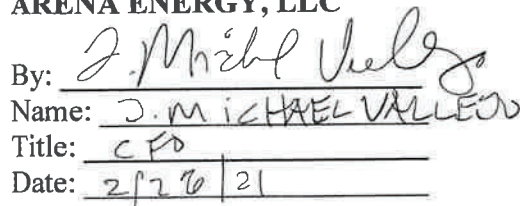 ARENA ENERGY, LLC
By: J. Michael Vallejo
Name: J. MICHAEL VALLEJO
Title: CFO
Date: 2/26/21